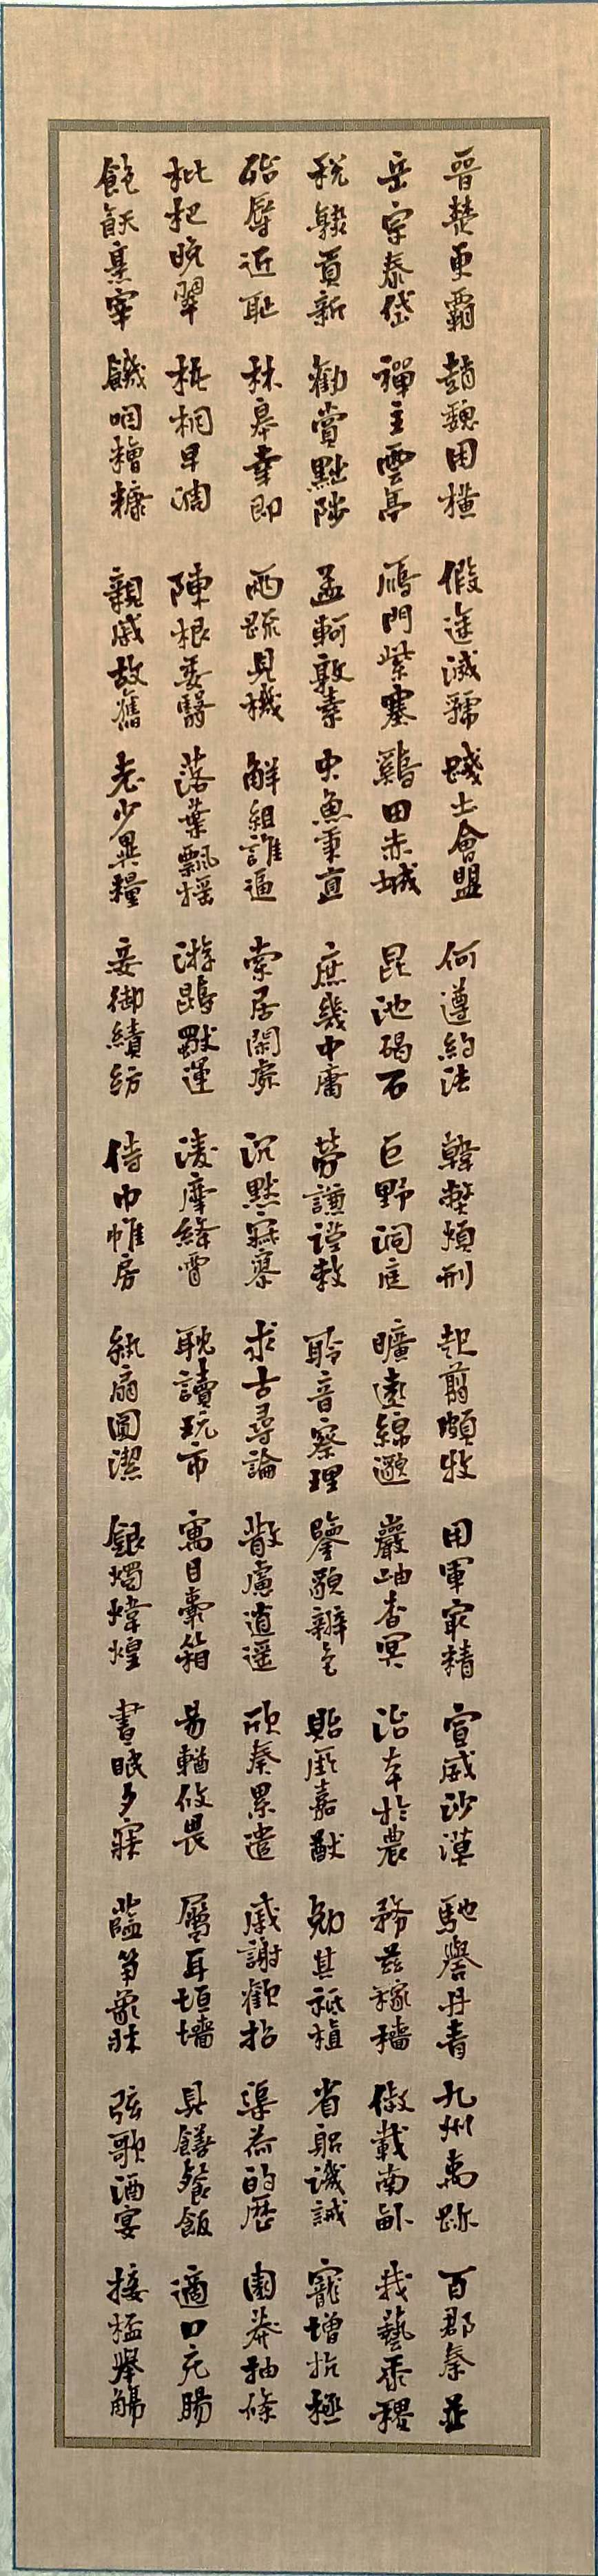 晉楚更霸 趙魏困橫 假途滅虢 踐土會盟 何遵約法 韓弊煩刑 起翦頗牧 用軍最精 宣威沙漠 馳譽丹青 九州禹跡 百郡秦並
岳宗泰岱 禪主雲亭 雁門紫塞 雞田赤城 昆池碣石 巨野洞庭 曠遠綿邈 巖岫杳冥 治本於農 務茲稼穡 俶載南畝 我藝黍稷
稅熟貢新 勸賞黜陟 孟軻敦素 史魚秉直 庶幾中庸 勞謙謹敕 聆音察理 鑒貌辨色 貽厥嘉猷 勉其祗植 省躬譏誡 寵增抗極
殆辱近恥 林皋幸即 兩疏見機 解組誰逼 索居閑處 沉默寂寥 求古尋論 散慮逍遥 欣奏累遣 慼謝歡招 渠荷的歷 園莽抽條
枇杷晚翠 梧桐早凋 陳根委翳 落葉飄搖 游鵾獨運 凌摩絳霄 耽讀玩市 寓目囊箱 易輶攸畏 屬耳垣墻 具膳餐飯 適口充腸
飽飫烹宰 饑咽糟糠 親戚故舊 老少異糧 妾御績紡 侍巾帷房 紈扇圓潔 銀燭煒煌 晝眠夕寐 藍筍象牀 弦歌酒宴 接杯舉觴